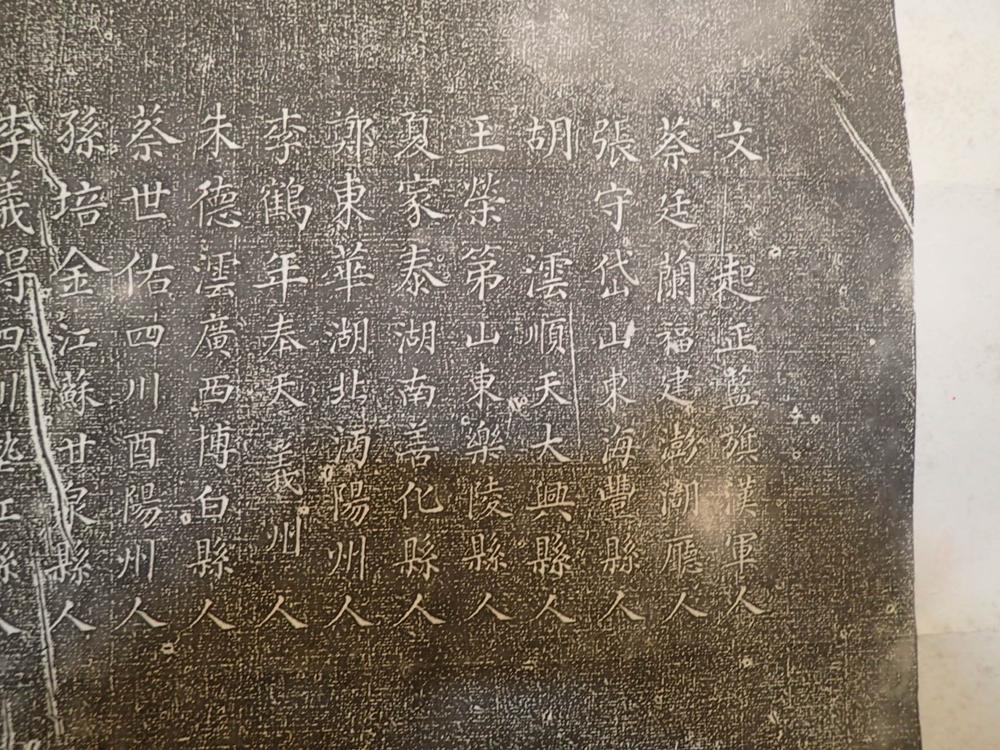 文 起正藍旗漢軍人
蔡廷蘭福建澎湖廳人
張守岱山東海豐縣人
胡 澐順天大興縣人
王榮第山東樂陵縣人
夏家泰湖南善化縣人
鄭東華湖北沔陽州人
李鶴年奉天義州人
朱德澐廣西博白縣人
蔡世佑四川酉陽州人
孫培金江蘇甘泉縣人
李義得四川墊江縣人